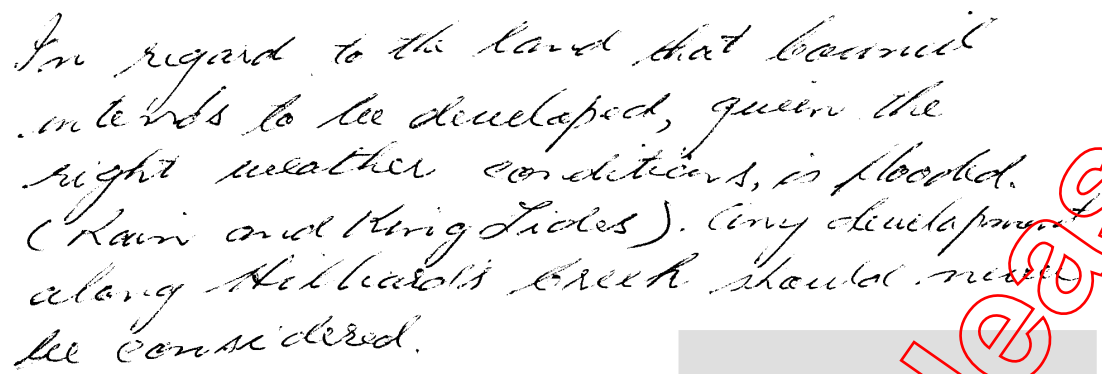 In regard to the land that council
intends to be developed, given the
right weather conditions, is flooded.
(Rain and King Tides). Any development
along Hilliards Creek should never
be considered.
leas